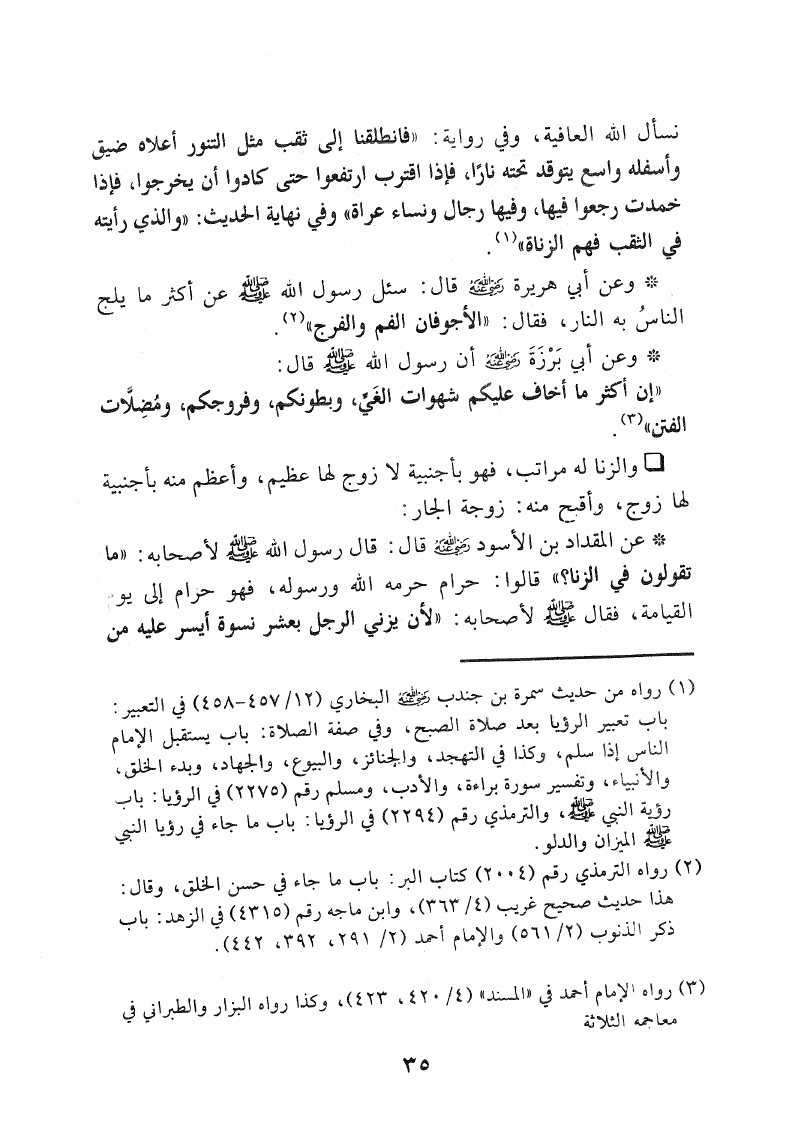 نسأل الله العافية، وفي رواية: «فانطلقنا إلى ثقب مثل التنور أعلاه ضيق
وأسفله واسع يتوقد تحته نارًا، فإذا اقترب ارتفعوا حتى كادوا أن يخرجوا، فإذا
خمدت رجعوا فيها، وفيها رجال ونساء عراة» وفي نهاية الحديث: «والذي رأيته
في الثقب فهم الزناة»(١).
* وعن أبي هريرة رضي الله عنه قال: سئل رسول الله ﷺ عن أكثر ما يلج
الناسُ به النار، فقال: «الأجوفان الفم والفرج»(٢).
* وعن أبي بَرْزَةَ رضي الله عنه أن رسول الله ﷺ قال:
«إن أكثر ما أخاف عليكم شهوات الغَيِّ، وبطونكم، وفروجكم، ومُضِلَّات
الفتن»(٣).
❑ والزنا له مراتب، فهو بأجنبية لا زوج لها عظيم، وأعظم منه بأجنبية
لها زوج، وأقبح منه: زوجة الجار:
* عن المقداد بن الأسود رضي الله عنه قال: قال رسول الله ﷺ لأصحابه: «ما
تقولون في الزنا؟» قالوا: حرام حرمه الله ورسوله، فهو حرام إلى يو
القيامة، فقال ﷺ لأصحابه: «لأن يزني الرجل بعشر نسوة أيسر عليه من
(١) رواه من حديث سمرة بن جندب رضي الله عنه البخاري (١٢/ ٤٥٧-٤٥٨) في التعبير:
باب تعبير الرؤيا بعد صلاة الصبح، وفي صفة الصلاة: باب يستقبل الإمام
الناس إذا سلم، وكذا في التهجد، والجنائز، والبيوع، والجهاد، وبدء الخلق،
والأنبياء، وتفسير سورة براءة، والأدب، ومسلم رقم (٢٢٧٥) في الرؤيا: باب
رؤية النبي ﷺ، والترمذي رقم (٢٢٩٤) في الرؤيا: باب ما جاء في رؤيا النبي
ﷺ الميزان والدلو.
(٢) رواه الترمذي رقم (٢٠٠٤) كتاب البر: باب ما جاء في حسن الخلق، وقال:
هذا حديث صحيح غريب (٤/ ٣٦٣)، وابن ماجه رقم (٤٣١٥) في الزهد: باب
ذكر الذنوب (٢/ ٥٦١) والإمام أحمد (٢/ ٢٩١، ٣٩٢، ٤٤٢).
(٣) رواه الإمام أحمد في «المسند» (٤/ ٤٢٠، ٤٢٣)، وكذا رواه البزار والطبراني في
معاجمه الثلاثة
٣٥